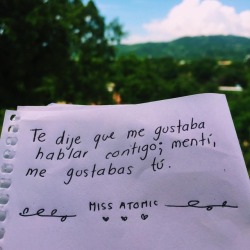 Te dije que me gustaba
hablar contigo; mentí,
me gustabas tú.
MISS ATOMIC